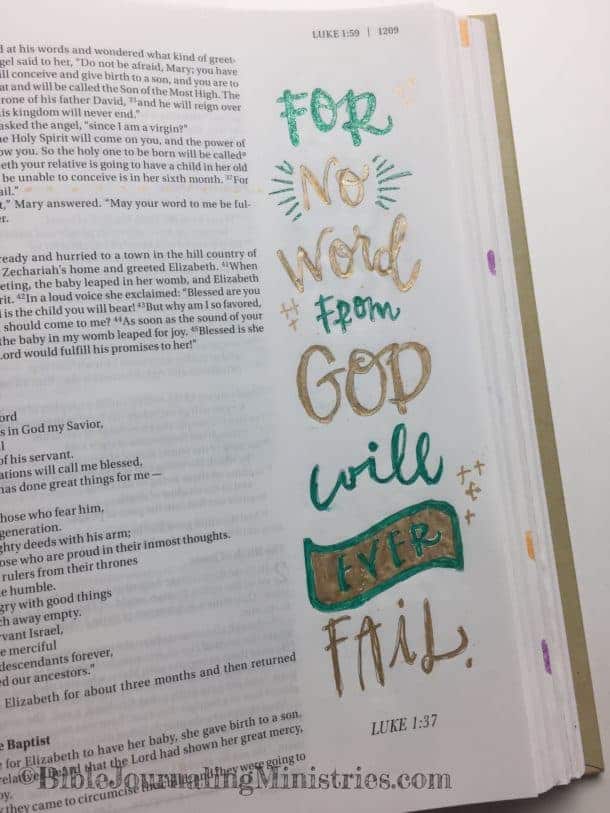 LUKE 1:59 | 1209
at his words and wondered what kind of greet-
gel said to her, "Do not be afraid, Mary; you have
ill conceive and give birth to a son, and you are to
at and will be called the Son of the Most High. The
rone of his father David, 33and he will reign over
is kingdom will never end."
asked the angel, "since I am a virgin?"
e Holy Spirit will come on you, and the power of
ow you. So the holy one to be born will be called
eth your relative is going to have a child in her old
be unable to conceive is in her sixth month. 37For
ail."
t," Mary answered. "May your word to me be ful-
r.
ready and hurried to a town in the hill country of
Zechariah's home and greeted Elizabeth. 41When
eeting, the baby leaped in her womb, and Elizabeth
rit. 42In a loud voice she exclaimed: "Blessed are you
is the child you will bear! 43But why am I so favored,
should come to me? 44As soon as the sound of your
the baby in my womb leaped for joy. 45Blessed is she
Lord would fulfill his promises to her!"
ord
s in God my Savior,
l
of his servant.
ations will call me blessed,
has done great things for me —
hose who fear him,
generation.
ghty deeds with his arm;
ose who are proud in their inmost thoughts.
rulers from their thrones
e humble.
gry with good things
ch away empty.
rvant Israel,
e merciful
descendants forever,
ed our ancestors."
Elizabeth for about three months and then returned
e Baptist
for Elizabeth to have her baby, she gave birth to a son.
that the Lord had shown her great mercy,
oy.
they came to circumcise and they were going to
FOR
NO
WORD
FROM
GOD
will
EVER
FAIL.
LUKE 1:37
©BibleJournalingMinistries.com